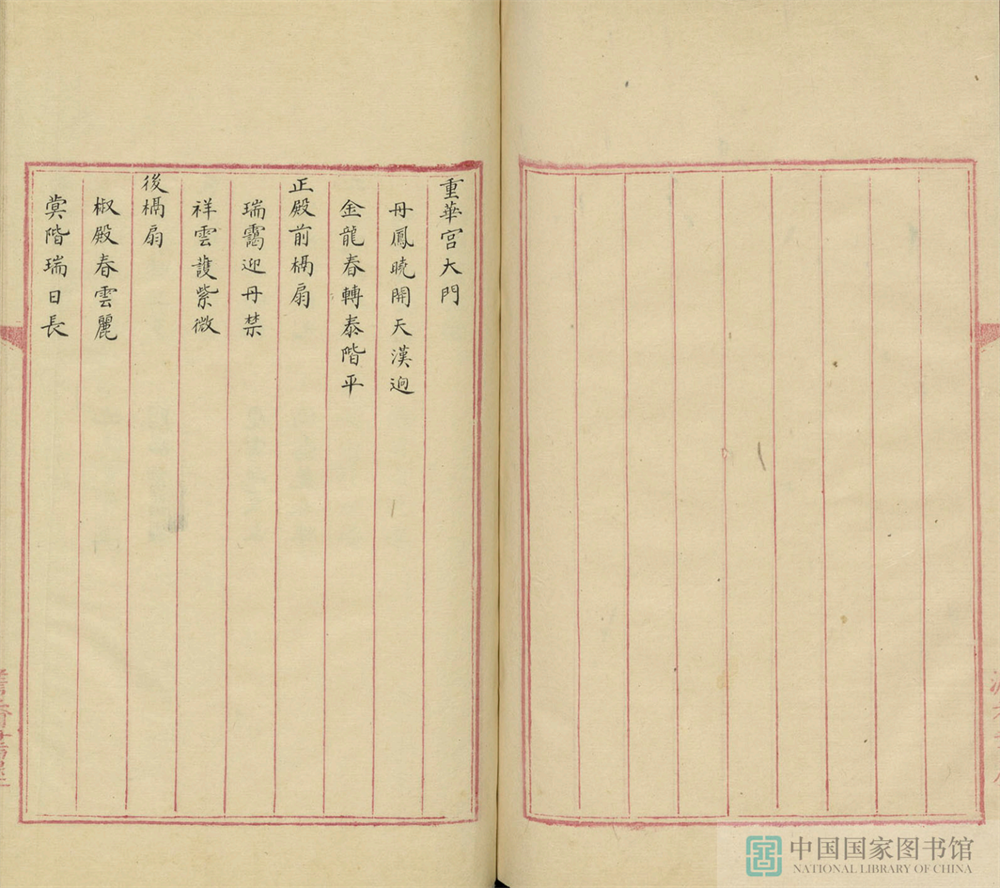 重華宮大門
丹鳳曉開天漢迥
金龍春轉泰階平
正殿前槅扇
瑞靄迎丹禁
祥雲護紫微
後槅扇
椒殿春雲麗
蓂階瑞日長
中国国家图书馆
NATIONAL LIBRARY OF CHINA